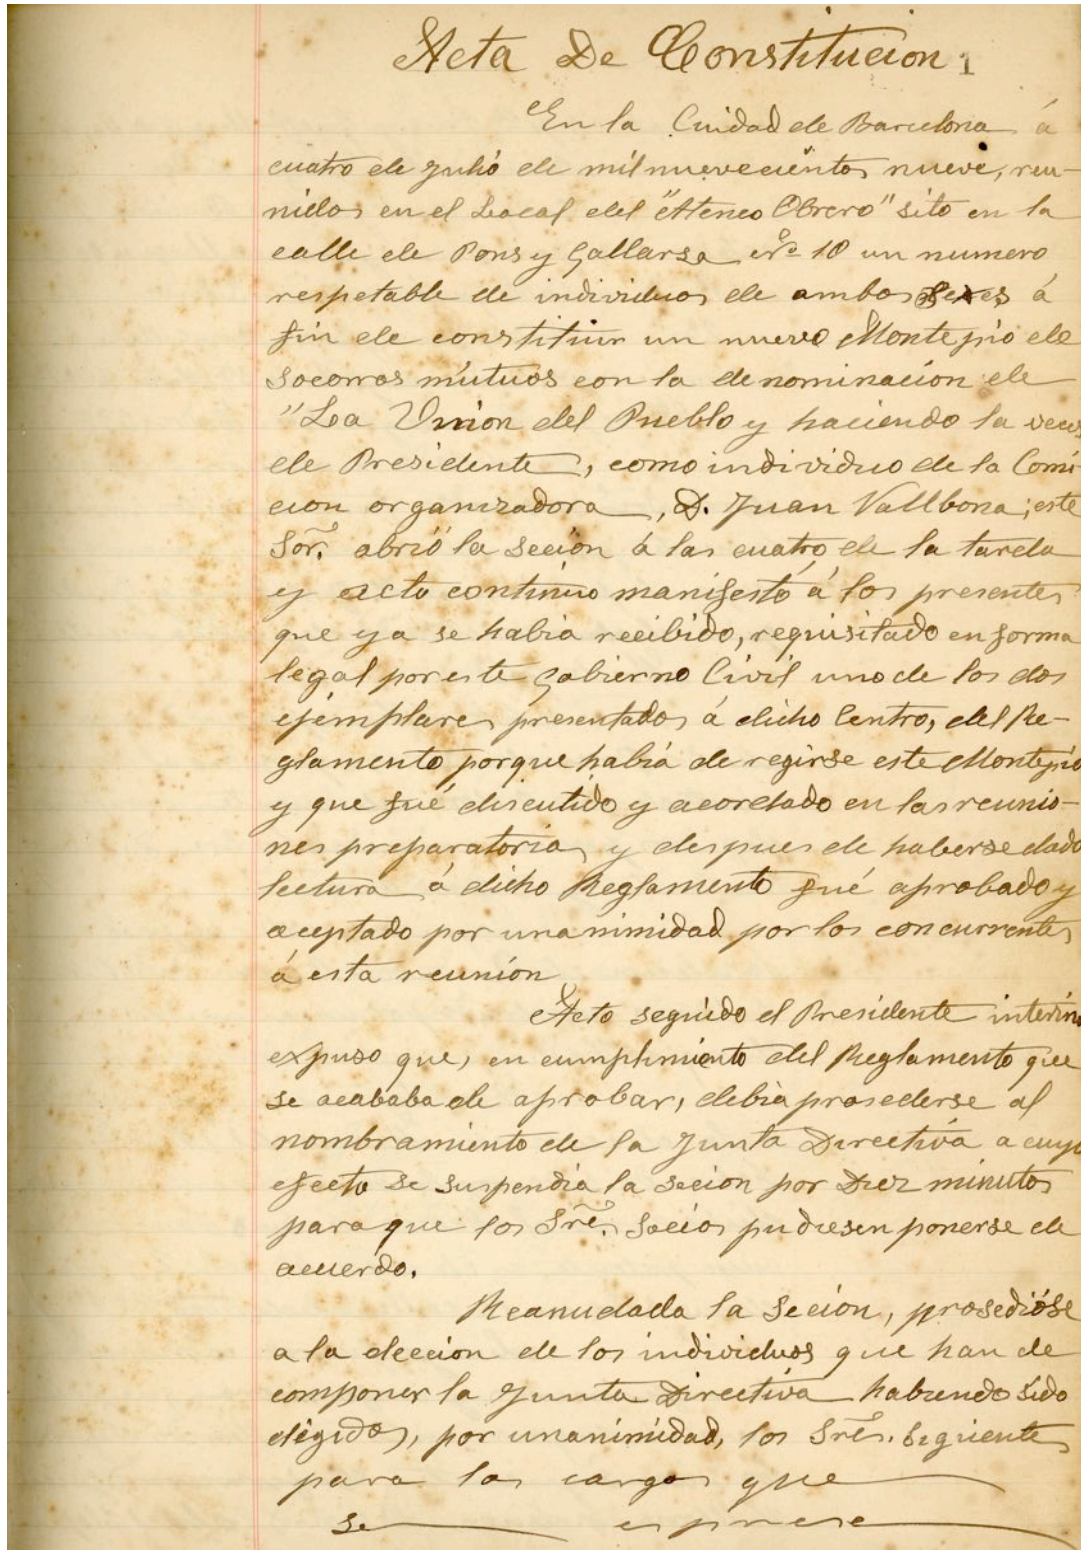 Acta De Constitucion 1
En la Ciudad de Barcelona á
cuatro de Julio de mil nuevecientos nueve, reu-
nidos en el Local del "Ateneo Obrero" sito en la
calle de Pons y Gallarsa nº 10 un numero
respetable de individuos de ambos sexes á
fin de constituir un nuevo Montepio de
Socorros mútuos con la denominacion de
"La Union del Pueblo y haciendo la veces
de Presidente, como individuo de la Comi
cion organizadora, D. Juan Vallbona; este
Sor. abrió la Seción á las cuatro de la tarde
y acto continuo manifestó á los presentes
que ya se habia recibido, requisitado en forma
legal por este Gobierno Civil uno de los dos
ejemplares presentados á dicho Centro, del Re-
glamento porque habia de regirse este Montepio
y que fué discutido y acordado en las reunio-
nes preparatorias y despues de haberse dado
lectura á dicho Reglamento fué aprobado y
aceptado por unanimidad por los concurrentes
á esta reunion
Acto seguido el Presidente interino
expuso que, en cumplimiento del Reglamento que
se acababa de aprobar, debia prosederse al
nombramiento de la Junta Directiva a cuyo
efecto se suspendia la secion por Diez minutos
para que los Sres. Socios pudiesen ponerse de
acuerdo.
Reanudada la Seción, prosedióse
a la eleccion de los individuos que han de
componer la Junta Directiva habiendo sido
elegidos, por unanimidad, los Sres. Siguientes
para los cargos que
se esprese